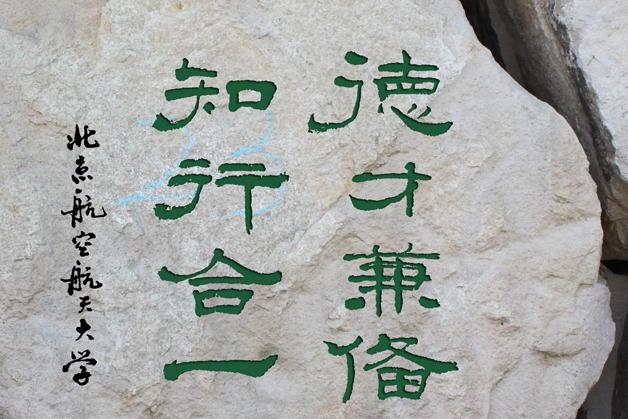 德才兼备
知行合一
北京航空航天大学